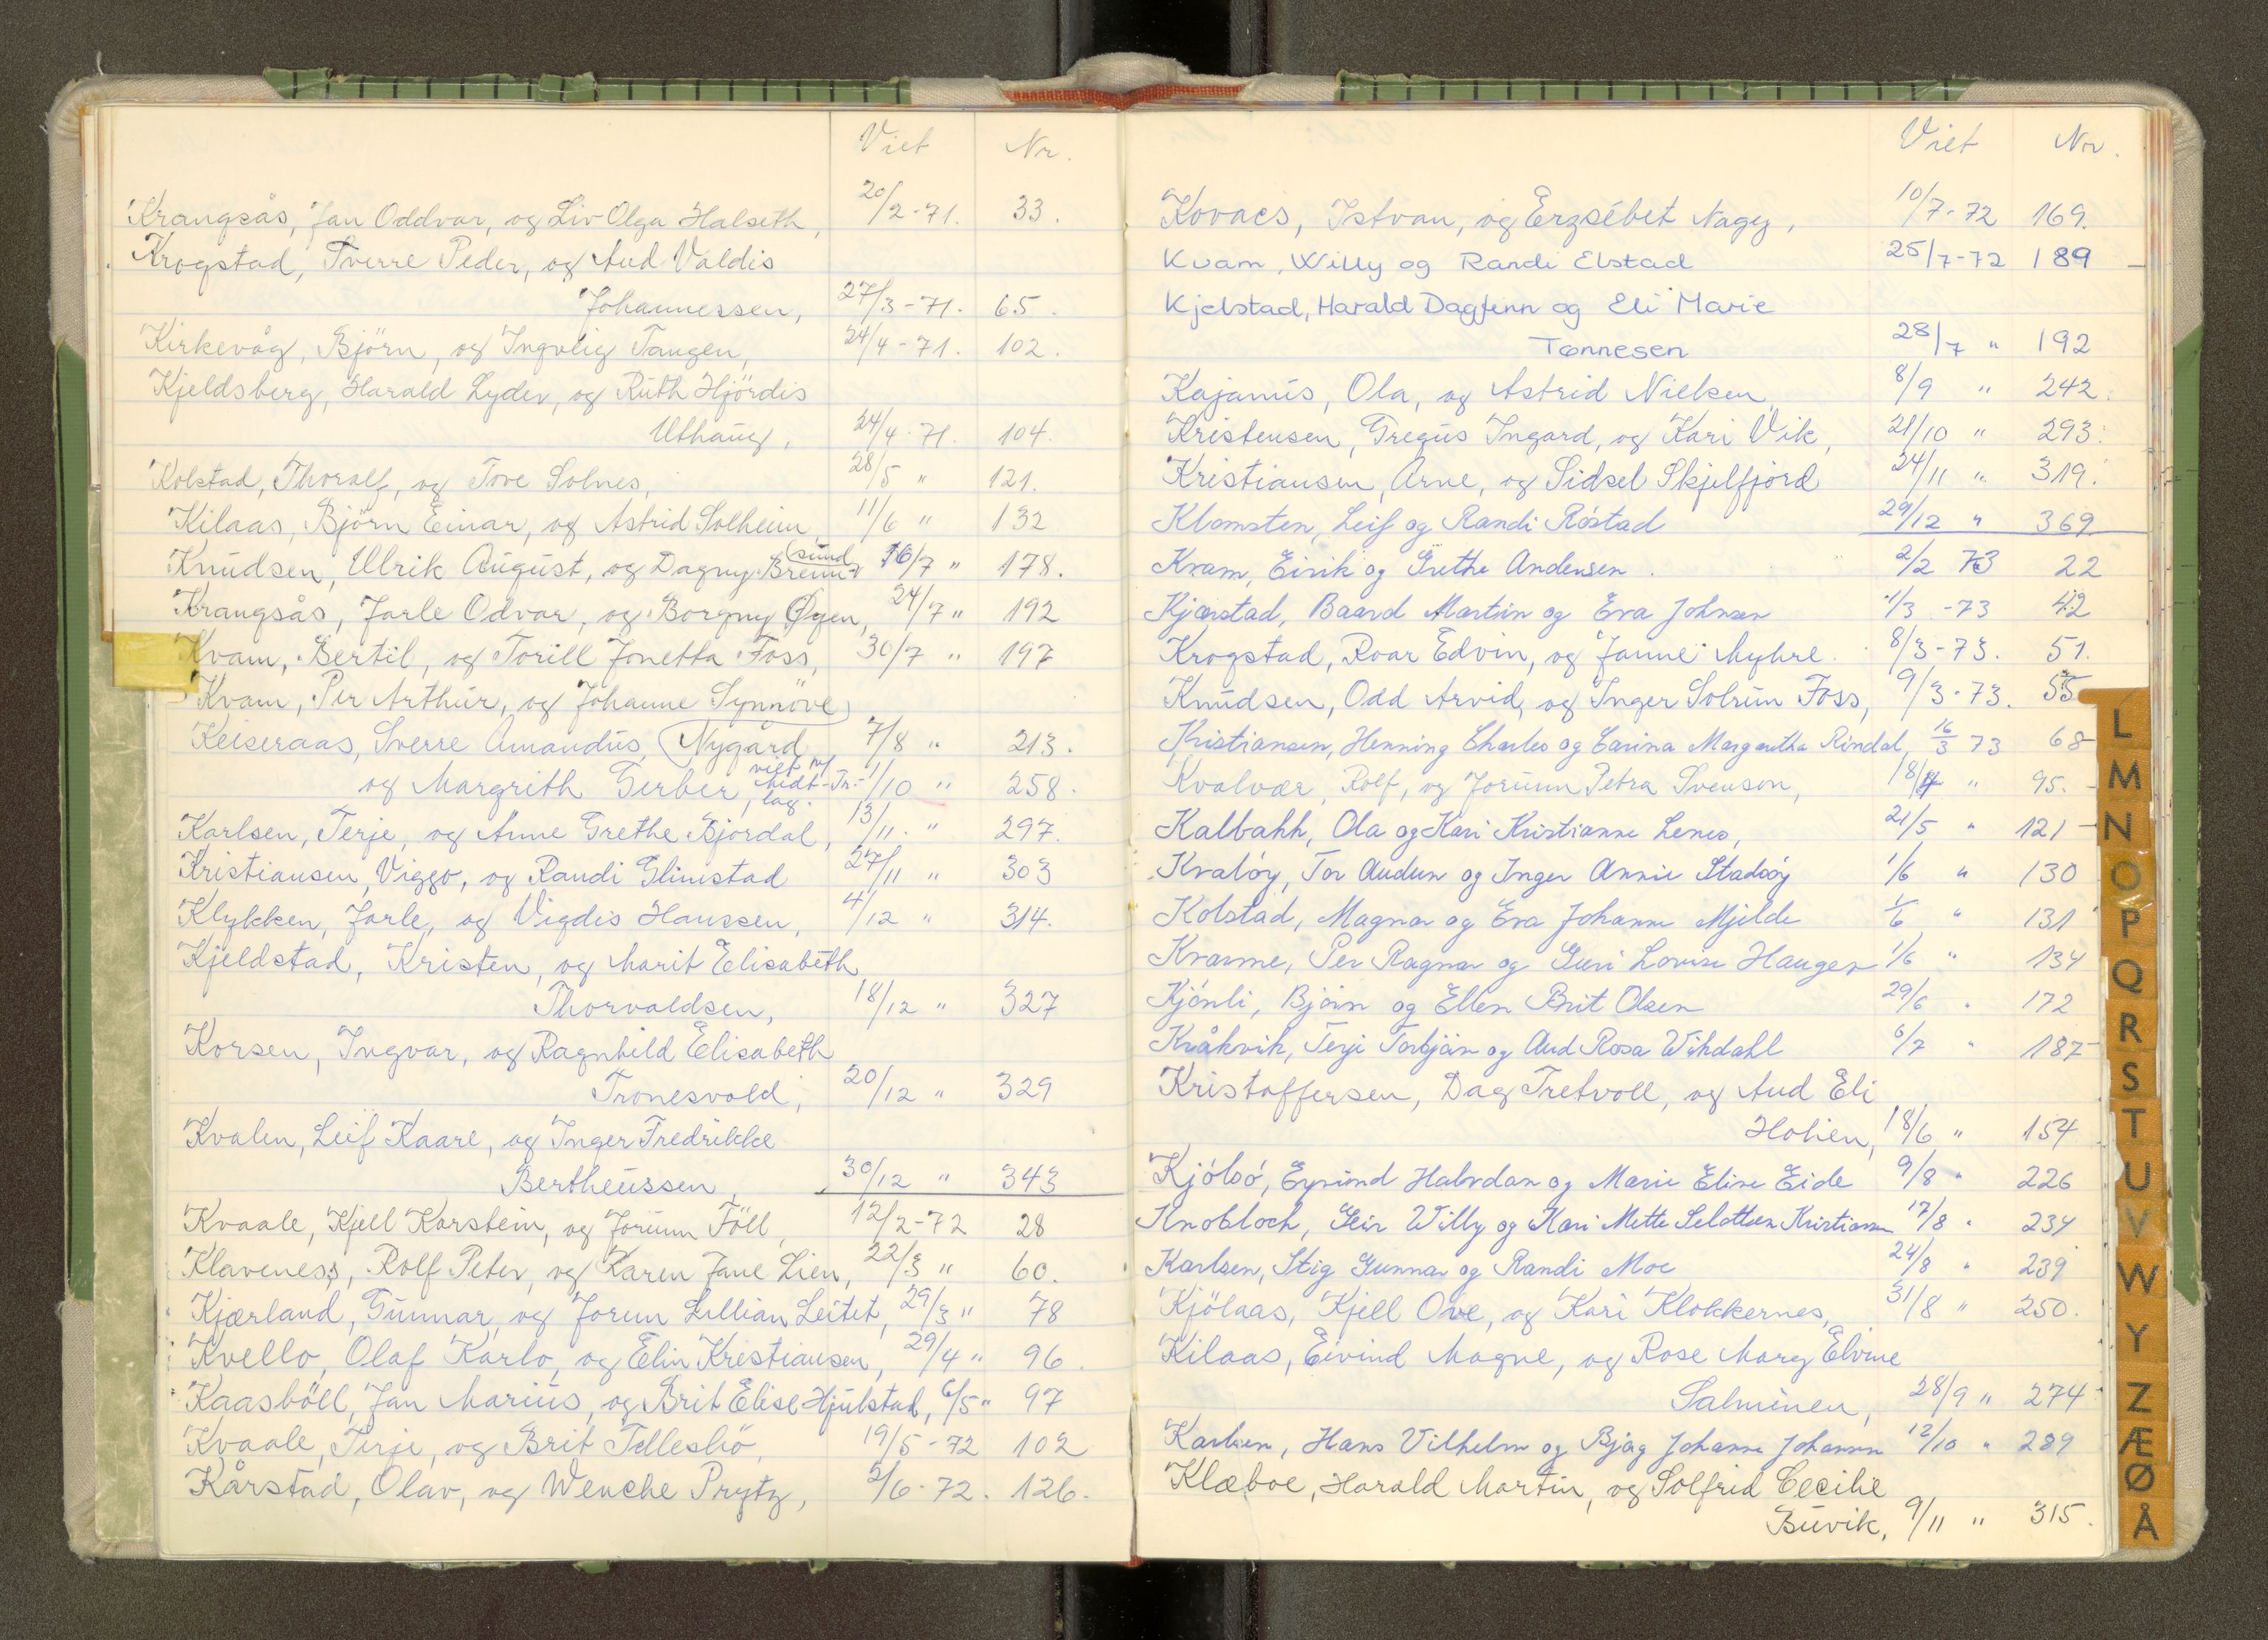 Viet Nr.
Krangsås, Jan Oddvar, og Liv Olga Halseth, 20/2-71. 33.
Krogstad, Sverre Peder, og Aud Valdis
Johannessen, 27/3-71. 65.
Kirkevåg, Björn, og Ingveig Tangen, 24/4-71. 102.
Kjeldsberg, Harald Lyder, og Ruth Hjördis
Uthaug, 24/4.71. 104.
Kolstad, Thoralf, og Tove Solnes, 28/5 " 121.
Kilaas, Björn Einar, og Astrid Solheim 11/6 " 132
(sund
Knudsen, Ulrik August, og Dagny Brenn- 16/7 " 178.
Krangsås, Jarle Odvar, og Borgny Øyen, 24/7 " 192
Kvam, Bertil, og Torill Jonetta Foss, 30/7 " 197
Kvam, Per Arthur, og Johanne Synnöve
Keiseraas, Sverre Amandus, (Nygård 7/8 " 213.
og Margrith Gerber, viet v/ Midt-Tr. lag. 1/10 " 258.
Karlsen, Terje, og Anne Grethe Bjordal, 13/11. " 297.
Kristiansen, Viggo, og Randi Glimstad 27/11 " 303
Klykken, Jarle, og Vigdis Hanssen, 4/12 " 314.
Kjeldstad, Kristen, og Marit Elisabeth
Thorvaldsen, 18/12 " 327
Korsen, Ingvar, og Ragnhild Elisabeth
Tronesvold, 20/12 " 329
Kvalen, Leif Kaare, og Inger Fredrikke
Bertheussen, 30/12 " 343
Kvaale, Kjell Karstein, og Jorunn Föll, 12/2-72 28
Klaveness, Rolf Peter, og Karen Jane Lien, 22/3 " 60.
Kjærland, Gunnar, og Jorun Lillian Leitet, 29/3 " 78
Kvello, Olaf Karlo, og Elin Kristiansen, 29/4 " 96.
Kaasböll, Jan Marius, og Brit Elise Hjulstad, 6/5 " 97
Kvaale, Terje, og Brit Tellesbö, 19/5-72 102
Kårstad, Olav, og Wenche Prytz, 2/6.72. 126.
Viet Nr.
Kovacs, Istvan, og Erzsébet Nagy, 10/7-72 169.
Kvam, Willy og Randi Elstad 25/7-72 189
Kjelstad, Harald Dagfinn og Eli Marie
Tønnesen 28/7 " 192
Kajanus, Ola, og Astrid Nielsen, 8/9 " 242.
Kristensen, Gregus Ingard, og Kari Vik, 21/10 " 293.
Kristiansen, Arne, og Sidsel Skjelfjord 24/11 " 319.
Klomsten, Leif og Randi Röstad 29/12 " 369
Kvam, Eirik og Grethe Andersen. 2/2 73 22
Kjærstad, Baard Martin og Eva Johnsen 1/3 -73 42
Krogstad, Roar Edvin, og Janne Myhre. 8/3-73. 51.
Knudsen, Odd Arvid, og Inger Solrun Foss, 9/3-73. 55
Kristiansen, Henning Charles og Carina Margaretha Rindal, 16/3 73 68
Kvalvær, Rolf, og Jorunn Petra Svenson, 18/4 " 95.
Kalbakk, Ola og Kari Kristianne Lenes, 21/5 " 121
Kvalöy, Tor Audun og Inger Annie Stadsöy 1/6 " 130
Kolstad, Magnar og Eva Johanne Mjelde 1/6 " 131
Kvarme, Per Ragnar og Guri Lovise Haugen 1/6 " 134
Kjönli, Björn og Ellen Brit Olsen 29/6 " 172
Kråkvik, Terje Torbjörn og Aud Rosa Wikdahl 6/7 " 187
Kristoffersen, Dag Tretvoll, og Aud Eli
Holien, 18/6 " 154
Kjölsö, Eyvind Halvdan og Marie Eline Eide 9/8 " 226
Knobloch, Geir Willy og Kari Mette Kristiansen 17/8 " 234
Karlsen, Stig Gunnar og Randi Moe 24/8 " 239
Kjölaas, Kjell Ove, og Kari Klokkernes, 31/8 " 250.
Kilaas, Eivind Magne, og Rose Mary Elvine
Salminen, 28/9 " 274
Karlsen, Hans Vilhelm og Bjørg Johanne Johansen 12/10 " 289
Klæboe, Harald Martin, og Solfrid Cecilie
Buvik, 9/11 " 315.
L
M
N
O
P
Q
R
S
T
U
V
W
Y
Z
Æ
Ø
Å